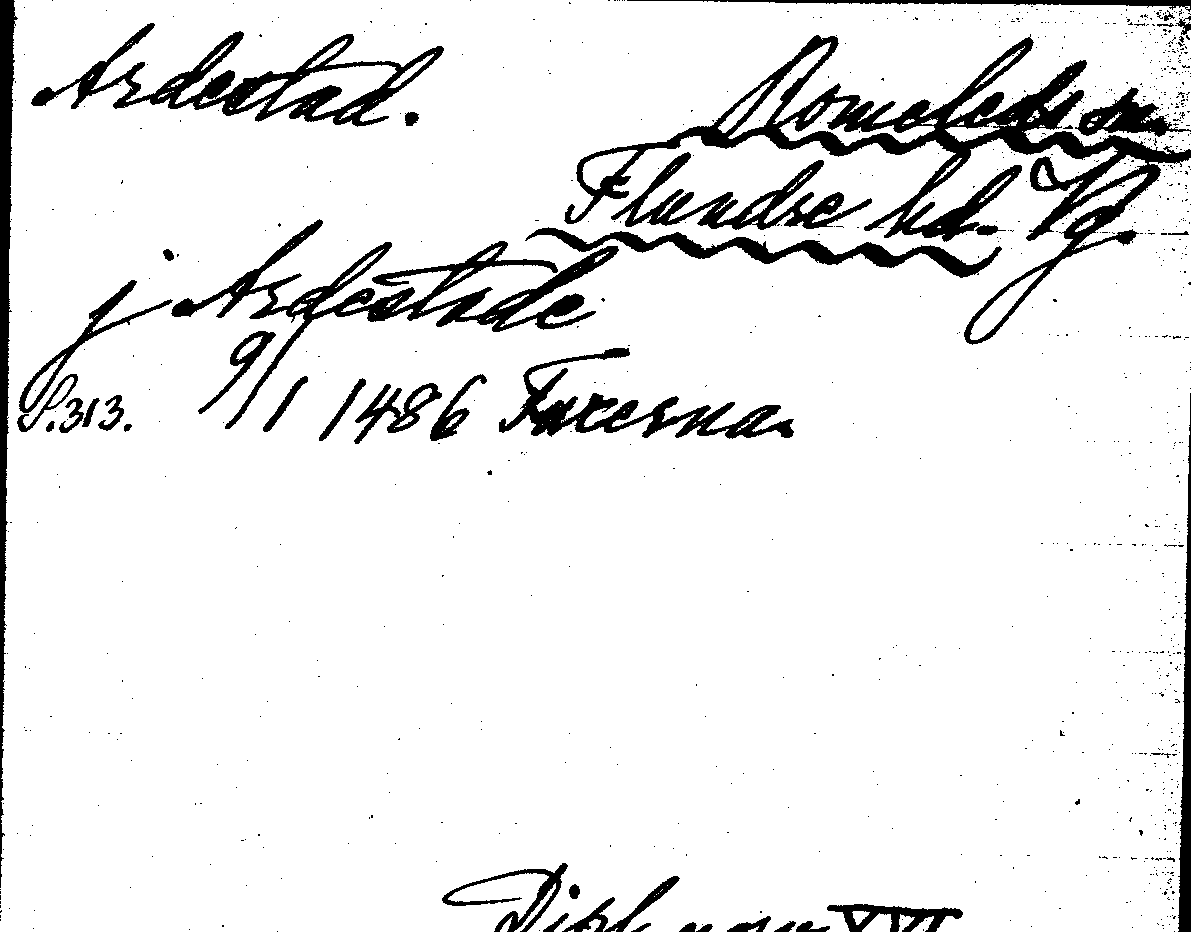 Ardestad.
Romeleds sn.
Flundre hd. Vg.
j Ardestade
S.313. 9/1 1486 Fuxerna.
Dipl. norv XVI